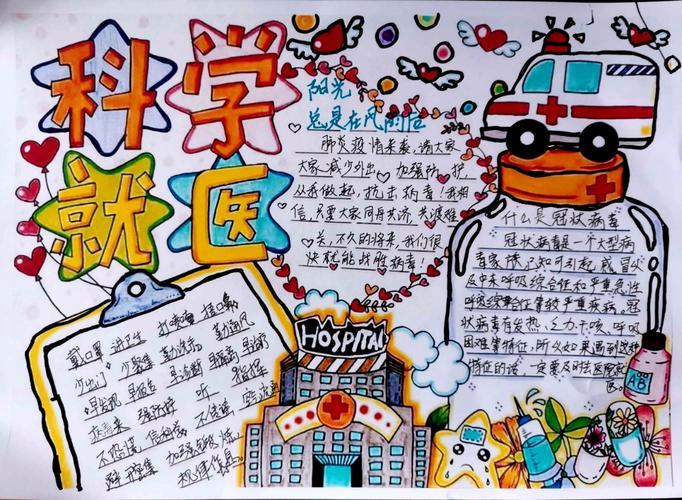 科学
就医
阳光
总是在风雨后
肺炎疫情来袭,请大家
大家减少外出,加强防护,
从我做起,抗击病毒!我相
信,只要大家同舟共济,共渡难
关,不久的将来,我们很
快就能战胜病毒!
什么是冠状病毒
冠状病毒是一个大型病
毒家族,已知可引起感冒以
及中东呼吸综合征和严重急性
呼吸综合征等较严重疾病。冠
状病毒有发热、乏力、干咳、呼吸
困难等特征,所以如果遇到这种
特征的话,一定要及时去医院就
医。
戴口罩 讲卫生 打喷嚏 捂口鼻
少出门 少聚集 勤洗手 勤通风
早发现 早报告 早诊断 早隔离 早治疗
强防护 不传谣 听指挥
不恐慌 信科学 加强锻炼
避聚集 规律作息
HOSPITAL
AB